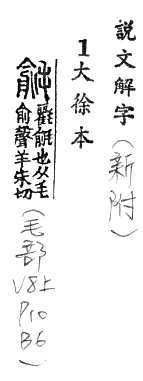 説文解字(新附)
1大徐本
毹 氍毹也从毛
俞聲羊朱切
(毛部 V8上 P10 B6)